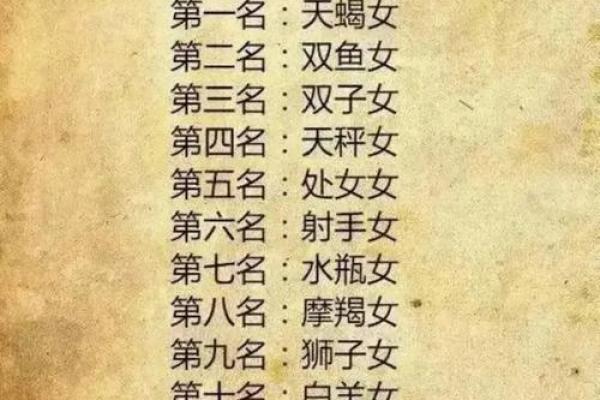 第一名：天蝎女
第二名：双鱼女
第三名：双子女
第四名：天秤女
第五名：处女女
第六名：射手女
第七名：水瓶女
第八名：摩羯女
第九名：狮子女
第十名：白羊女